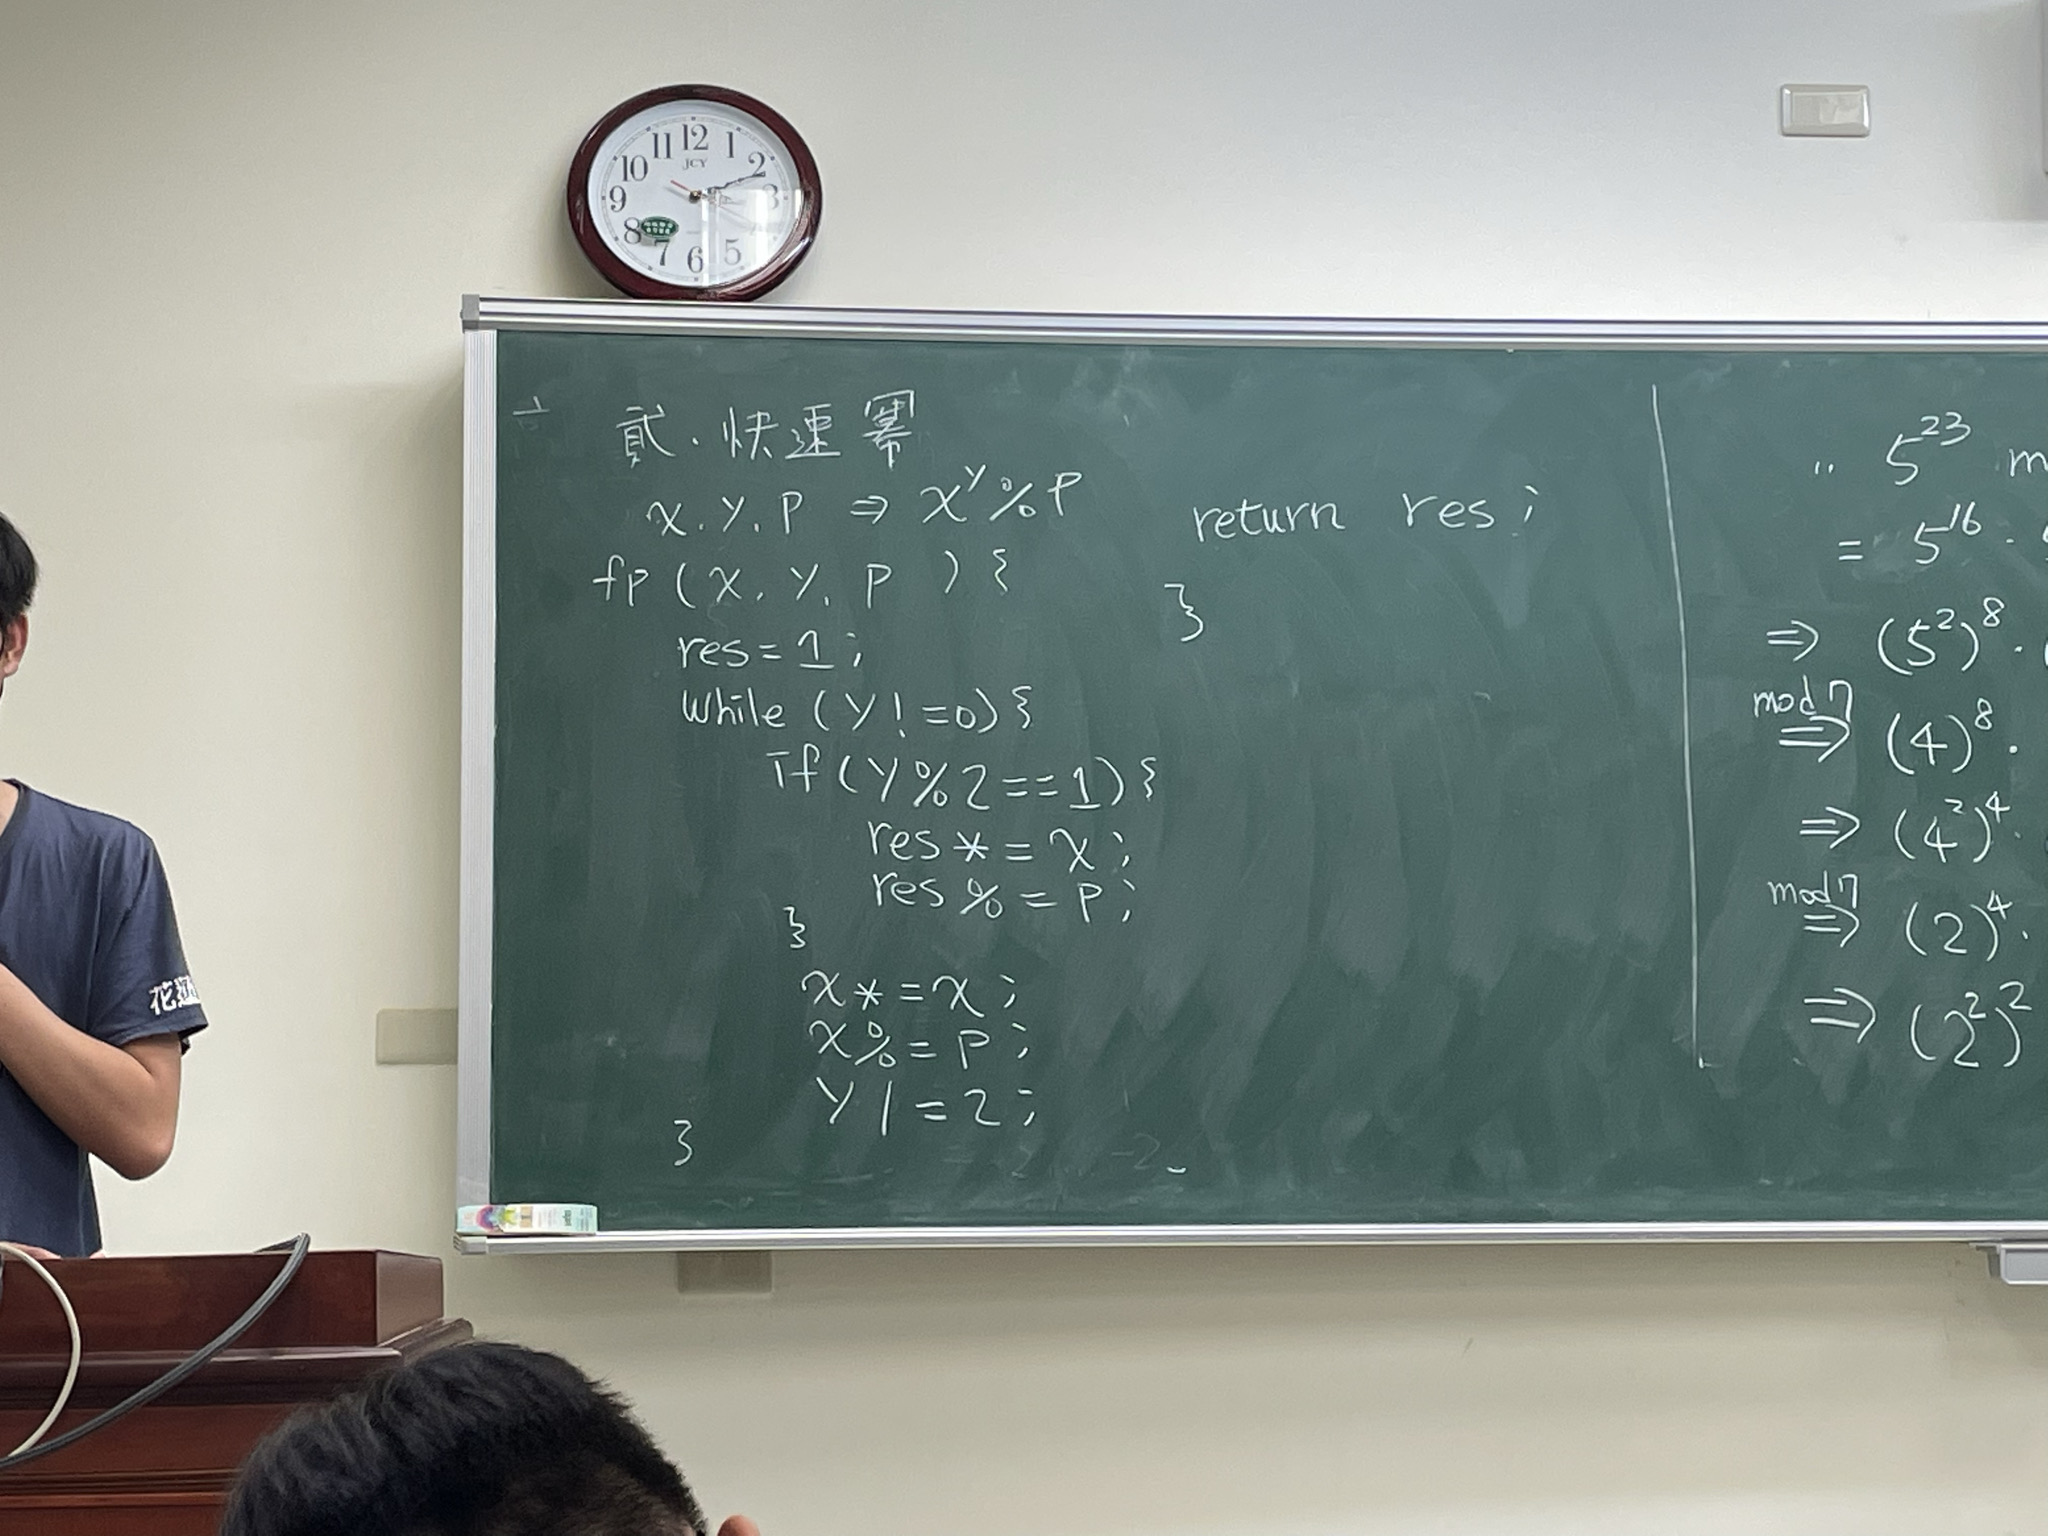 11 12 1
10 JCY 2
9 3
8 7 6 5
貳.快速冪
x.y.p ⇒ x^y%p
fp(x,y,p){
res=1;
while(y!=0){
if(y%2==1){
res*=x;
res%=p;
}
x*=x;
x%=p;
y/=2;
}
return res;
}
5^23
= 5^16 ·
⇒ (5^2)^8 ·
mod 7
⇒ (4)^8 ·
⇒ (4^2)^4 ·
mod 7
⇒ (2)^4 ·
⇒ (2^2)^2
花